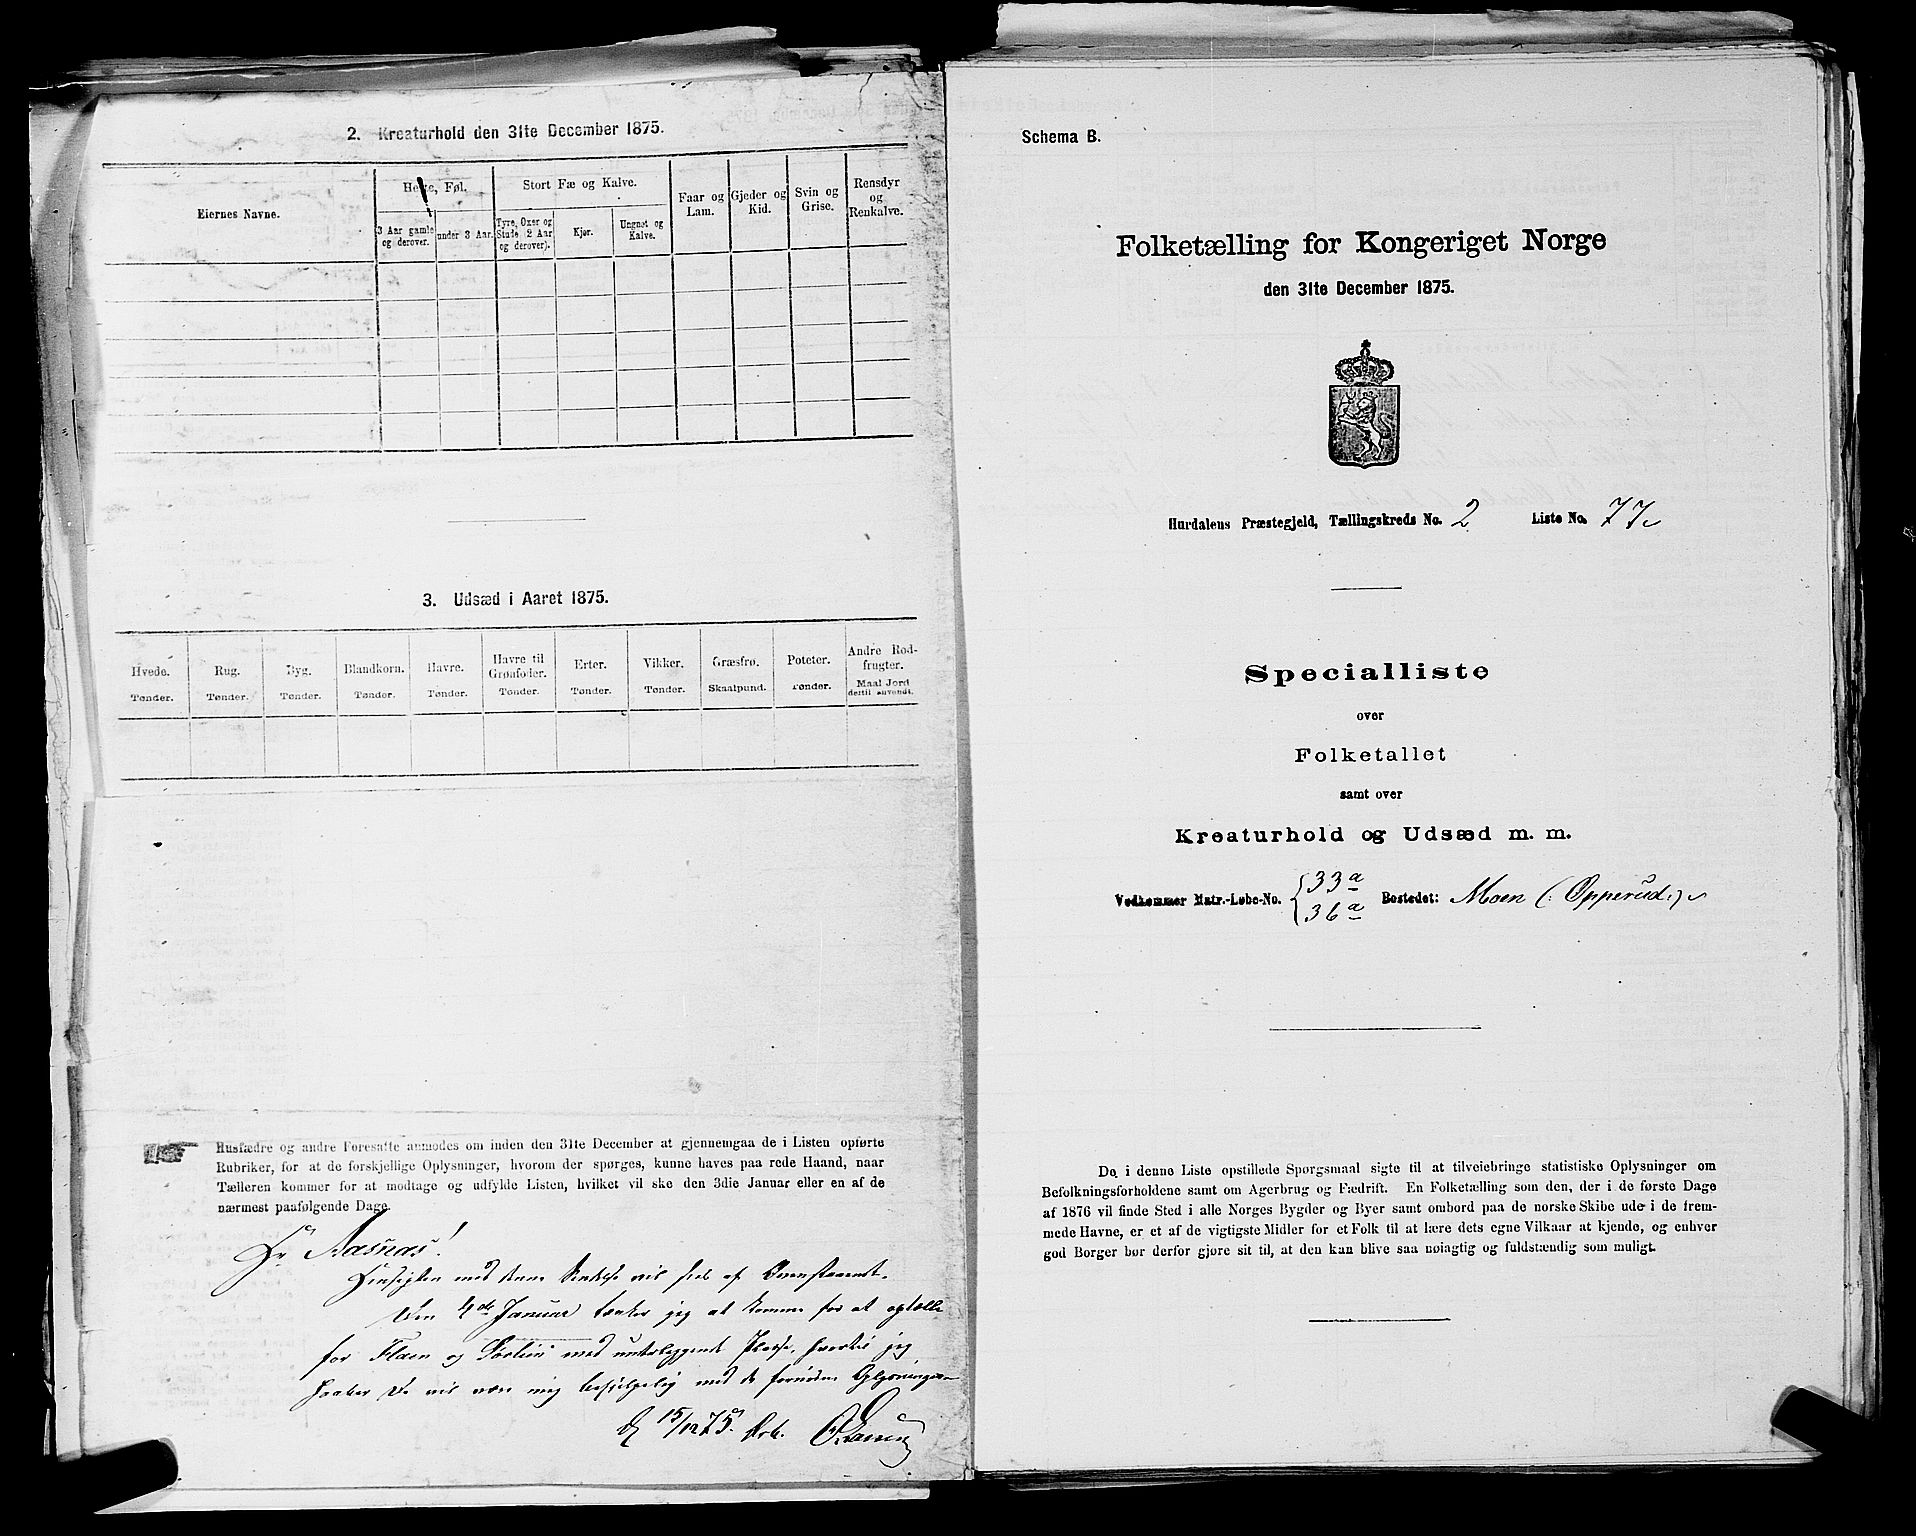 2. Kreaturhold den 31te December 1875.
Eiernes Navne.
Heste, Føl.
3 Aar gamle og derover.
under 3 Aar.
Stort Fæ og Kalve.
Tyre, Oxer og Stude (2 Aar og derover).
Kjør.
Ungnøt og Kalve.
Faar og Lam.
Gjeder og Kid.
Svin og Grise.
Rensdyr og Renkalve.
3. Udsæd i Aaret 1875.
Hvede. Rug. Byg. Blandkorn. Havre. Havre til Grønfoder. Erter. Vikker. Græsfrø. Poteter. Andre Rodfrugter.
Tønder. Tønder. Tønder. Tønder. Tønder. Tønder. Tønder. Tønder. Skaalpund. Tønder. Maal Jord dertil anvendt.
Husfædre og andre Foresatte anmodes om inden den 31te December at gjennemgaa de i Listen opførte
Rubriker, for at de forskjellige Oplysninger, hvorom der spørges, kunne haves paa rede Haand, naar
Tælleren kommer for at modtage og udfylde Listen, hvilket vil ske den 3die Januar eller en af de
nærmest paafølgende Dage.
Hr Aasnæs!
Hensigten med denne vil sees af Ovenstaaende.
Den 4de Januar tænker jeg at komme for at optælle
for Flaen og med underliggende Pladse, hvortil jeg
haaber De vil være mig behjelpelig med de fornødne Oplysninger
15/12 75.
Schema B.
Folketælling for Kongeriget Norge
den 31te December 1875.
Hurdalens Præstegjeld, Tællingskreds No. 2 Liste No. 77
Specialliste
over
Folketallet
samt over
Kreaturhold og Udsæd m. m.
Vedkommer Matr.-Løbe-No. { 33a 36a Bostedet: Moen (: Opperud :)
De i denne Liste opstillede Spørgsmaal sigte til at tilveiebringe statistiske Oplysninger om
Befolkningsforholdene samt om Agerbrug og Fædrift. En Folketælling som den, der i de første Dage
af 1876 vil finde Sted i alle Norges Bygder og Byer samt ombord paa de norske Skibe ude i de frem-
mede Havne, er et af de vigtigste Midler for et Folk til at lære dets egne Vilkaar at kjende, og enhver
god Borger bør derfor gjøre sit til, at den kan blive saa nøiagtig og fuldstændig som muligt.